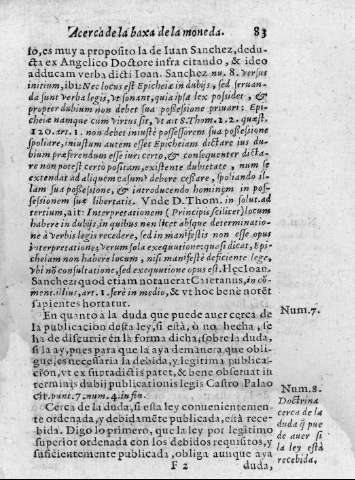 Acerca de la baxa de la moneda. 83
so, es muy a proposito la de Iuan Sanchez, dedu-
cta ex Angelico Doctore infra citando, & ideo
adducam verba dicti Ioan. Sanchez nu. 8. versus
initium, ibi: Nec locus est Epicheiæ in dubijs, sed seruan-
da sunt verba legis, vt sonant, quia ipsa lex possidet, &
propter dubium non debet sua possessione priuari; Epi-
cheia namque cum virtus sit, vt ait S. Thom. 2. 2. quæst.
120. art. 1. non debet iniustè possessorem sua possessione
spoliare, iniustum autem esset Epicheiam dictare ius du-
bium præferendum esse iuri certo, & consequenter dicta-
re non potest certò positam, existente dubietate, num se
extendat ad aliquem casum debere cessare, spoliando il-
lam sua possessione, & introducendo hominem in pos-
sessionem suæ libertatis. Vnde D. Thom. in solut. ad
tertium, ait: Interpretationem (Principis scilicet) locum
habere in dubijs, in quibus non licet absque determinatio-
ne à verbis legis recedere, sed in manifestis non esse opus
interpretatione, verum sola exequutione: quasi dicat, Epi-
cheiam non habere locum, nisi manifestè deficiente lege,
vbi nõ consultatione, sed exequutione opus est. Hęc Ioan.
Sanchez: quod etiam notauerat Caietanus, in cõ-
ment. illius, art. 1. ferè in medio, & vt hoc bene notẽt
sapientes hortatur.
En quanto à la duda que puede auer cerca de
la publicacion desta ley, si està, ò no, hecha, se
ha de discurrir en la forma dicha, sobre la duda,
si la ay, pues para que la aya de manera que obli-
gue, es necessaria la debida, y legitima publica-
cion, vt ex supradictis patet, & bene obseruat in
terminis dubij publicationis legis Castro Palao
cit. punt. 7. num. 4. in fin.
Cerca de la duda, si essa ley conuenientemen-
te ordenada, y debidamẽte publicada, està rece-
bida. Digo lo primero, que la ley por legitimo
superior ordenada con los debidos requisitos, y
suficientemente publicada, obliga aunque aya
F 2 duda,
Num. 7.
Num. 8.
Doctrina
cerca de la
duda q̃ pue
de auer si
la ley està
recebida.